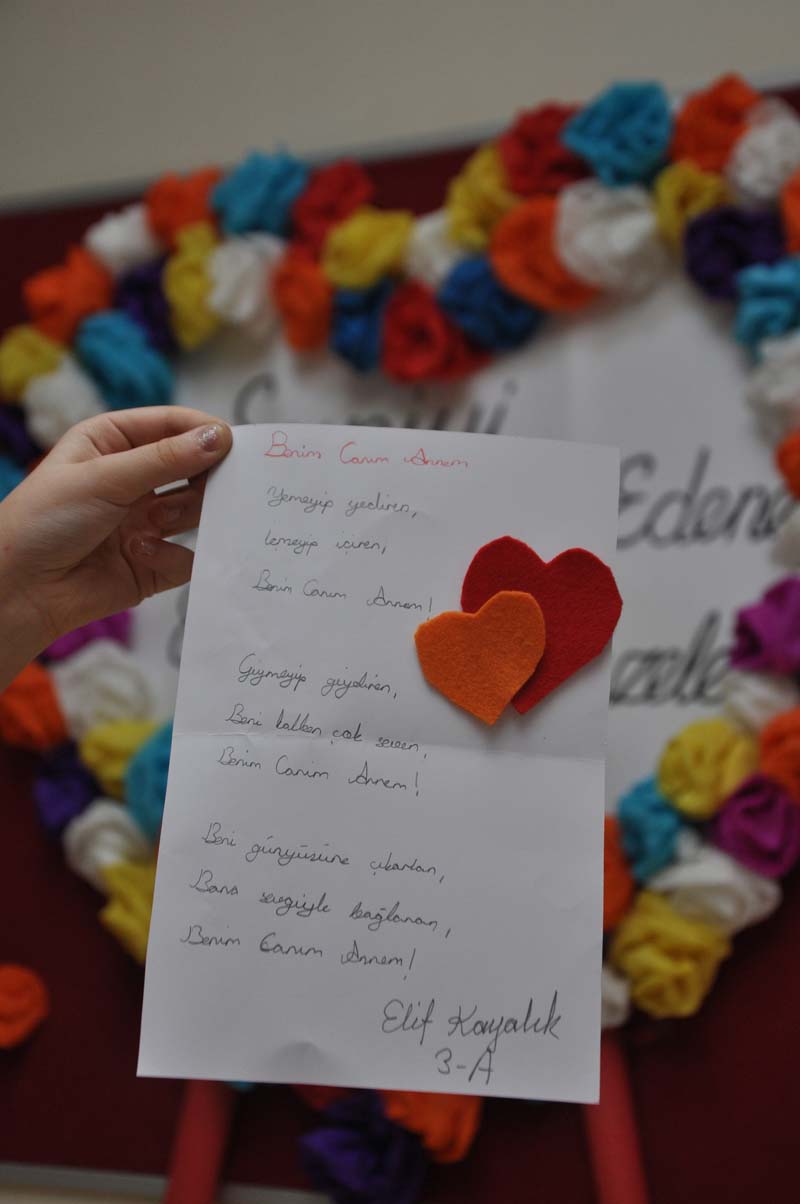 Benim Canım Annem
Yemeyip yediren,
İçmeyip içiren,
Benim Canım Annem!
Giymeyip giydiren,
Beni kalben çok seven,
Benim Canım Annem!
Beni günyüsüne çıkartan,
Bana sevgiyle bağlanan,
Benim Canım Annem!
Elif Kayalık
3-A
Edene